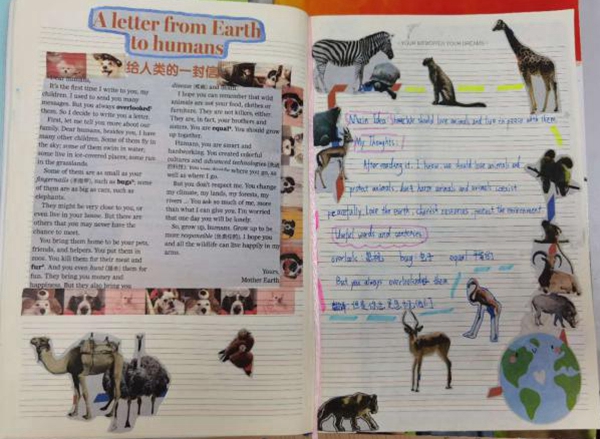 A letter from Earth
to humans
给人类的一封信
It's the first time I write to you, my
children. I used to send you many
messages. But you always overlooked
them. So I decide to write you a letter.
First, let me tell you more about our
family. Dear humans, besides you, I have
many other children. Some of them fly in
the sky; some of them swim in water;
some live in ice-covered places; some run
in the grasslands.
Some of them are as small as your
fingernails such as bugs; some
of them are as big as cars, such as
elephants.
They might be very close to you, or
even live in your house. But there are
others that you may never have the
chance to meet.
You bring them home to be your pets,
friends, and helpers. You put them in
zoos. You kill them for their meat and
fur. And you even hunt them for
fun. They bring you money and
happiness. But they also bring you
disease and death.
I hope you can remember that wild
animals are not your food, clothes or
furniture. They are not killers, either.
They are, in fact, your brothers and
sisters. You are equal. You should grow
up together.
Humans, you are smart and
hardworking. You created colorful
cultures and advanced technologies
You decide where you go, as
well as where I go.
But you don't respect me. You change
my climate, my lands, my forests, my
rivers ... You ask so much of me, more
than what I can give you. I'm worried
that one day you will be lonely.
So, grow up, humans. Grow up to be
more responsible I hope you
and all the wildlife can live happily in my
arms.
Yours,
Mother Earth
YOUR MEMORIES YOUR DREAMS
Main Idea should love animals and live in peace with them
My Thoughts:
After reading it, I know we should love animals and
protect animals, don't harm animals and animals coexist
peacefully. Love the earth, cherish resources, protect the environment
Useful words and sentences
overlook 忽略 bug 虫子 equal 平等的
But you always overlooked them